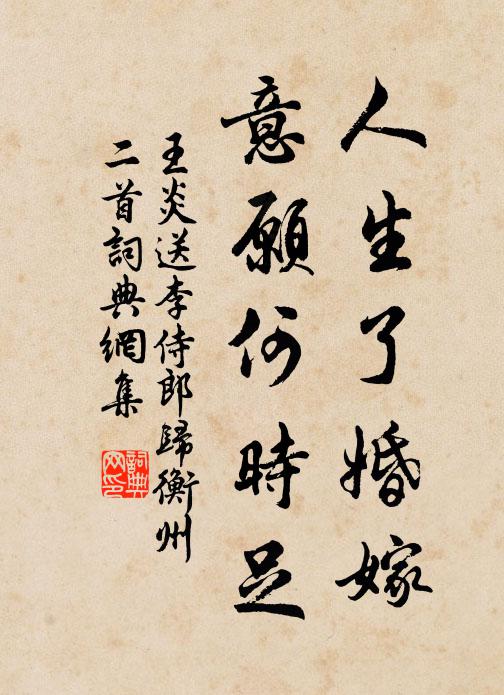 人生了婚嫁
意願何時足
王炎送李侍郎歸衡州
二首詞典網集
詞典网印